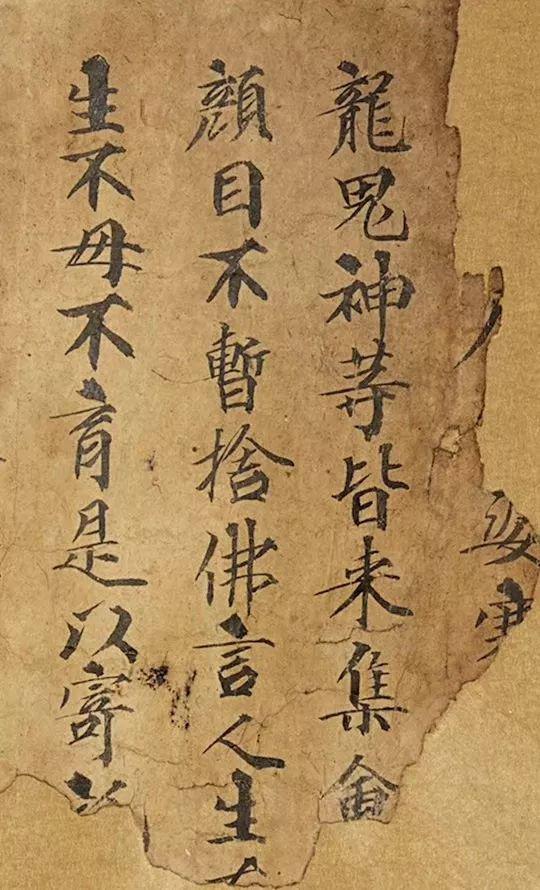 龍鬼神等皆来集會
顏目不暫捨佛言人生
生不母不育是以寄